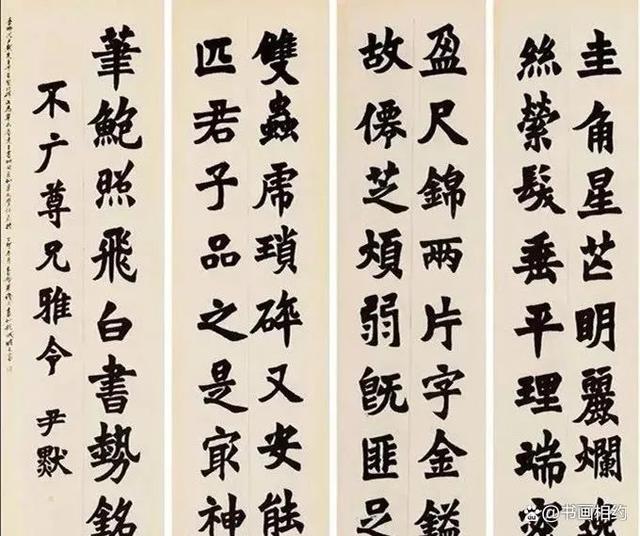 圭角星芒明麗爛逸
絲縈髮垂平理端密
盈尺錦兩片字金鎰
故僊芝煩弱既匪足
雙蟲虎瑣碎又安能
匹君子品之是冣神
筆鮑照飛白書勢銘
不广尊兄雅令 尹默
书画相约